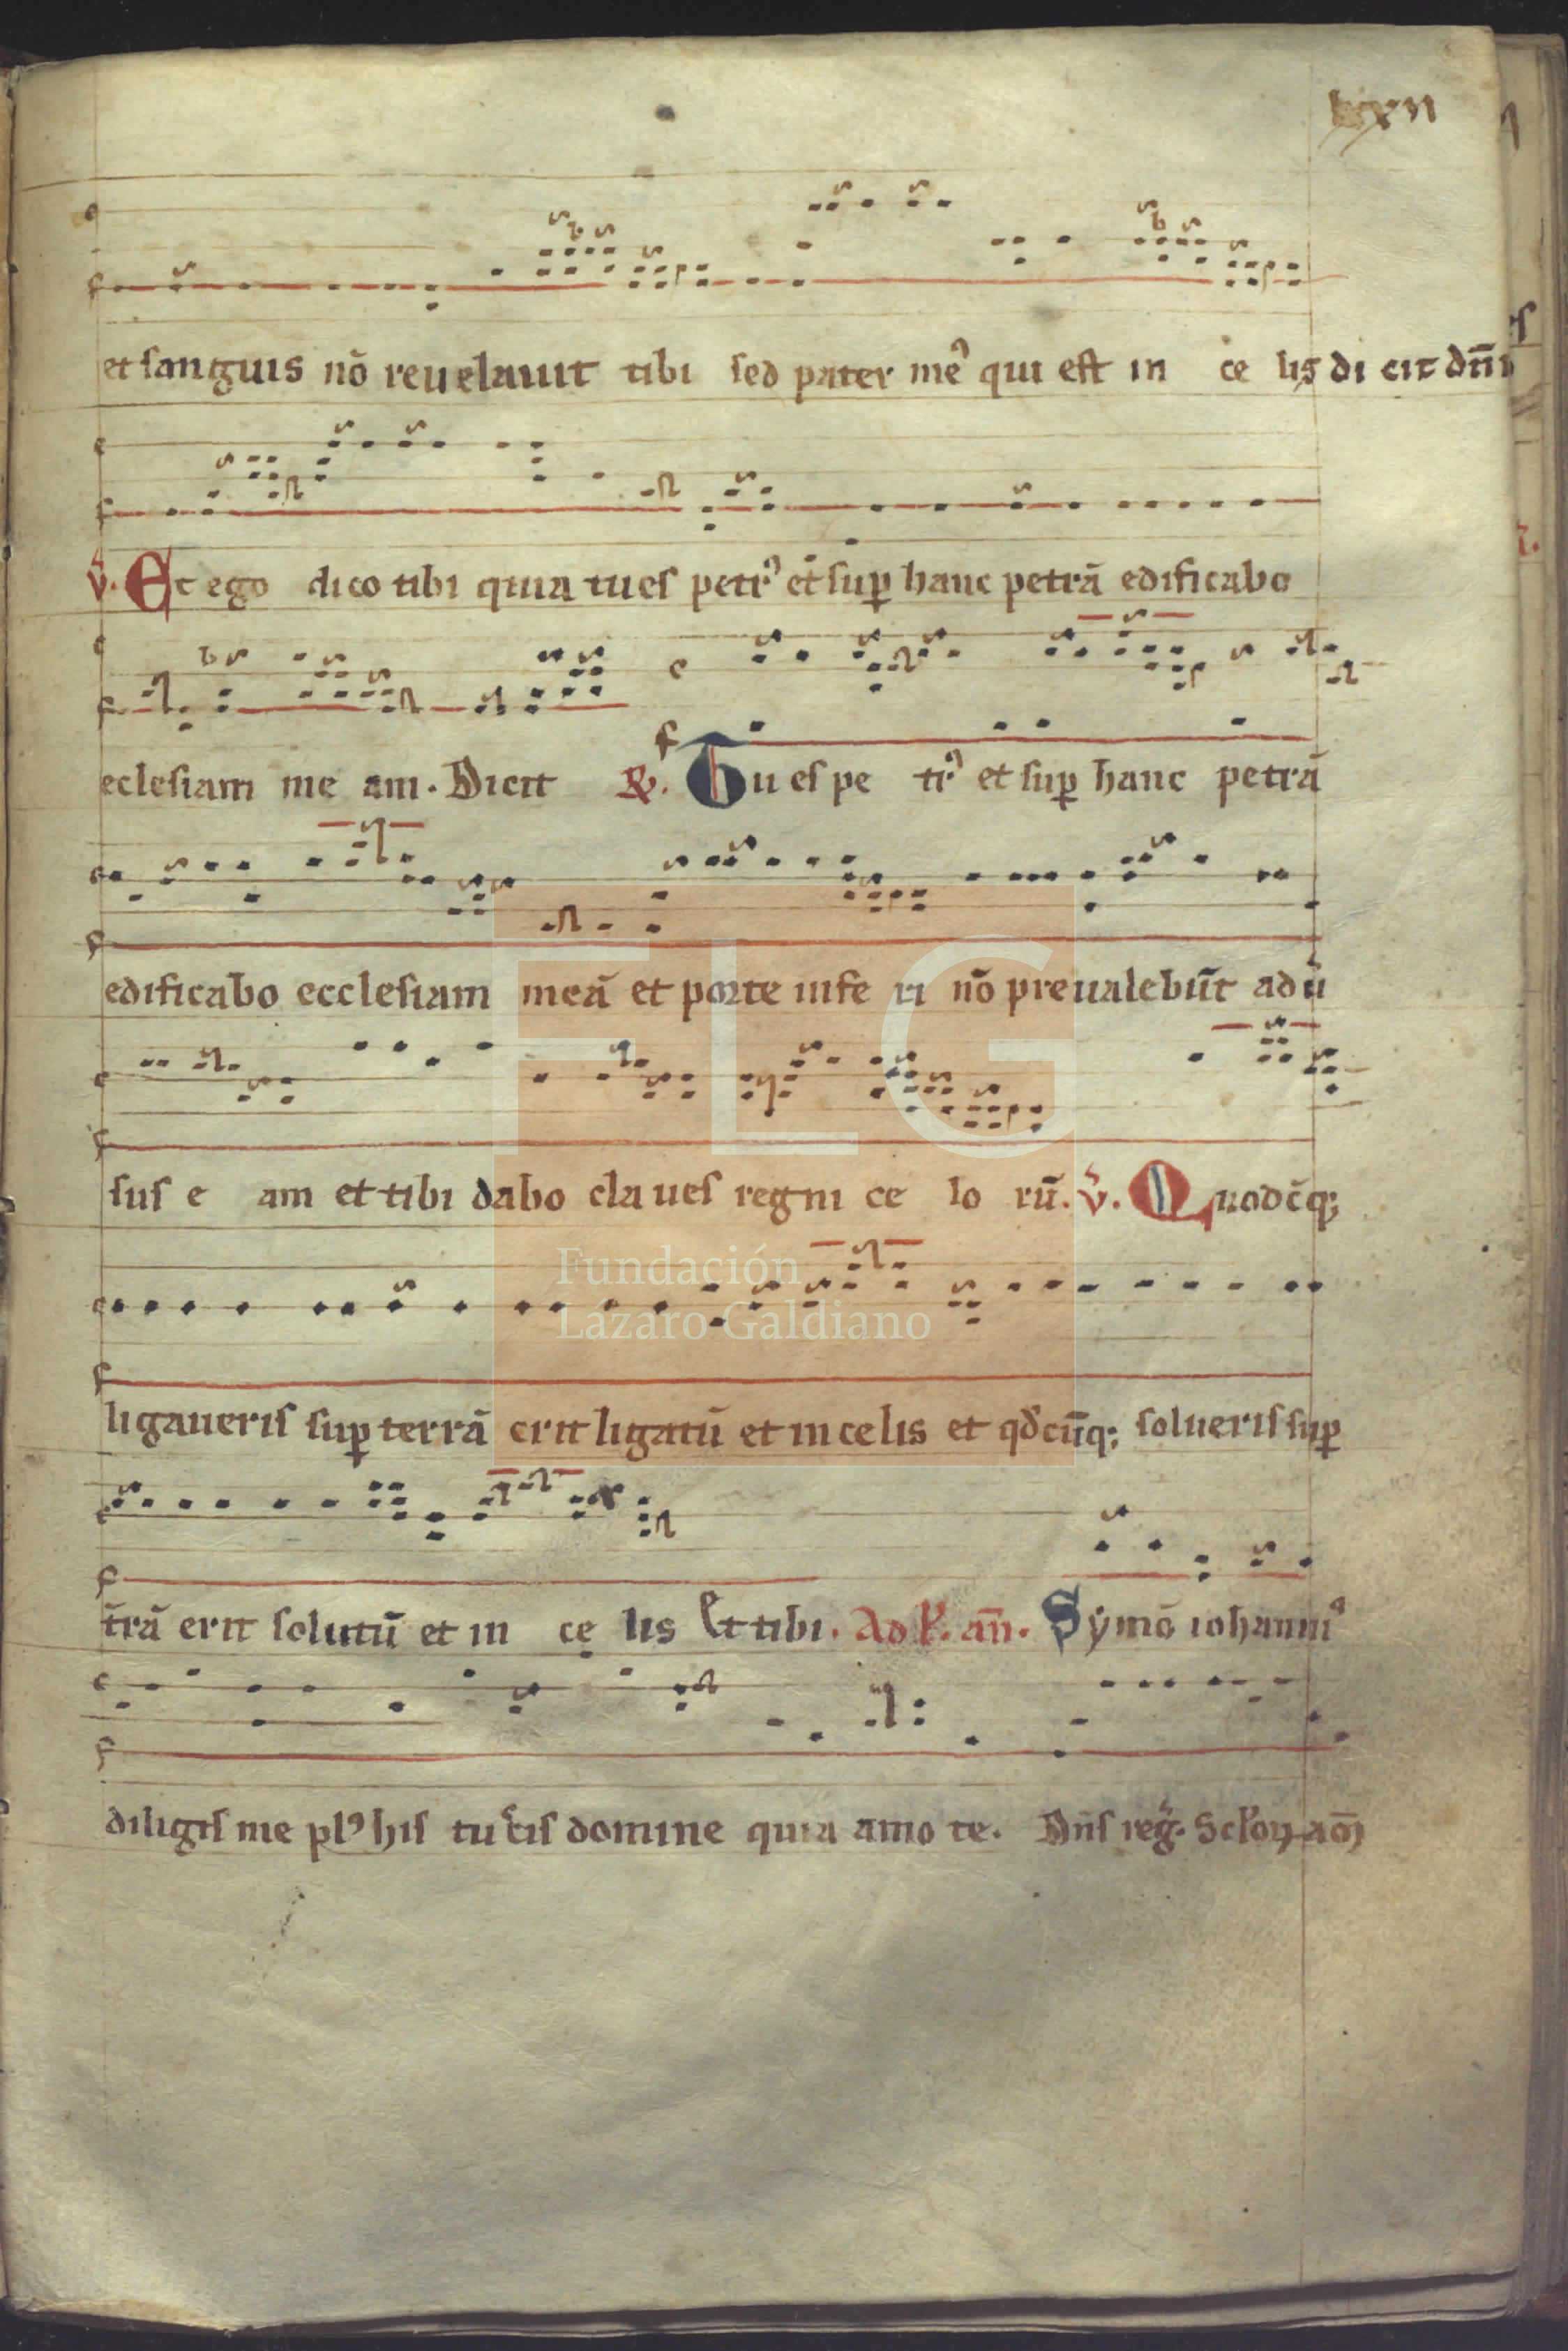 lxxii
et sanguis nō reuelauit tibi sed pater meꝰ qui est in ce lis di cit dn̄s
v̄. Et ego dico tibi quia tu es petrꝰ et suꝑ hanc petrā edificabo
eclesiam me am. Dicit ℟. Tu es pe trꝰ et suꝑ hanc petrā
edificabo ecclesiam meā et porte infe ri nō preualebūt adū
sus e am et tibi dabo claues regni ce lo rū. v̄. Quodcūq;
ligaueris suꝑ terrā erit ligatū et in celis et qdcūq; solueris suꝑ
t̄rā erit solutū et in cę lis Et tibi. Ad an̄. Symō iohannis
diligis me plꝰ his tu scis domine quia amo te. Dn̄s reg.
Fundación
Lázaro Galdiano
FLG